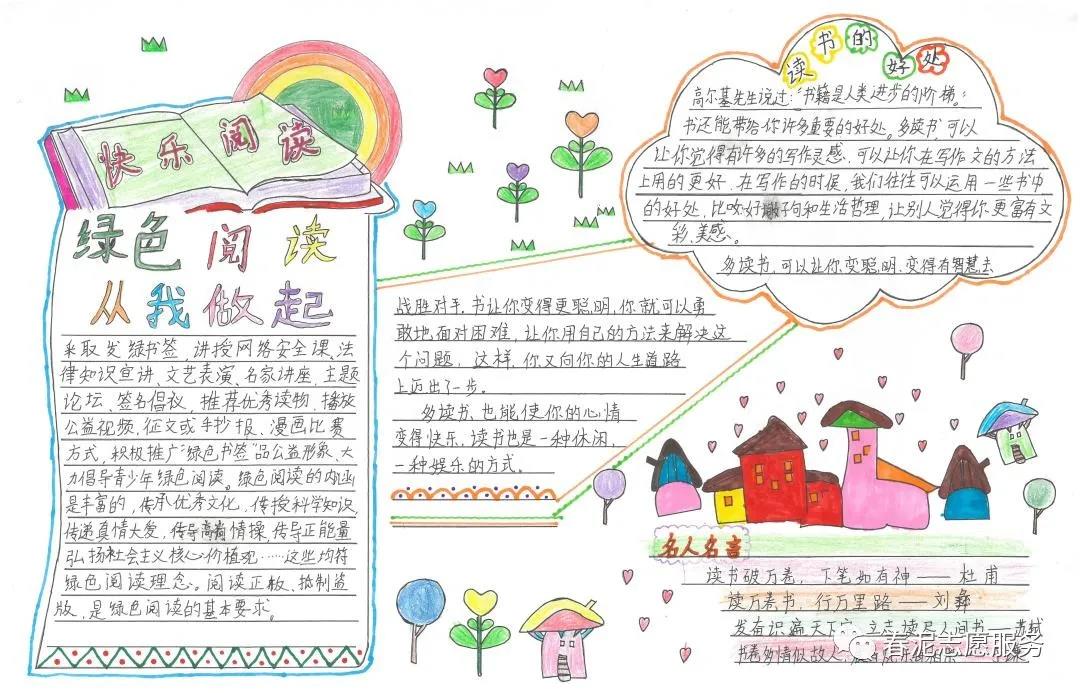 快乐阅读
绿色阅读
从我做起
采取发绿书签，讲授网络安全课、法
律知识宣讲、文艺表演、名家讲座，主题
论坛、签名倡议，推荐优秀读物、播放
公益视频，征文或手抄报、漫画比赛
方式，积极推广“绿色书签”品公益形象、大
力倡导青少年绿色阅读。绿色阅读的内涵
是丰富的，传承优秀文化，传授科学知识，
传递真情大爱，传导高尚情操，传导正能量
弘扬社会主义核心价值观……这些均符
绿色阅读理念。阅读正版、抵制盗
版，是绿色阅读的基本要求。
读书的好处
高尔基先生说过：“书籍是人类进步的阶梯。”
书还能带给你许多重要的好处。多读书，可以
让你觉得有许多的写作灵感、可以让你在写作文的方法
上用的更好。在写作的时候，我们往往可以运用一些书中
的好处，比如好词好句和生活哲理，让别人觉得你更富有文
彩、美感。
多读书，可以让你变聪明，变得有智慧去
战胜对手，书让你变得更聪明，你就可以勇
敢地面对困难，让你用自己的方法来解决这
个问题，这样，你又向你的人生道路
上迈出了一步。
多读书，也能使你的心情
变得快乐，读书也是一种休闲，
一种娱乐的方式。
名人名言
读书破万卷，下笔如有神——杜甫
读万卷书，行万里路——刘彝
发奋识遍天下字，立志读尽人间书——苏轼
书卷多情似故人，
春泥志愿服务